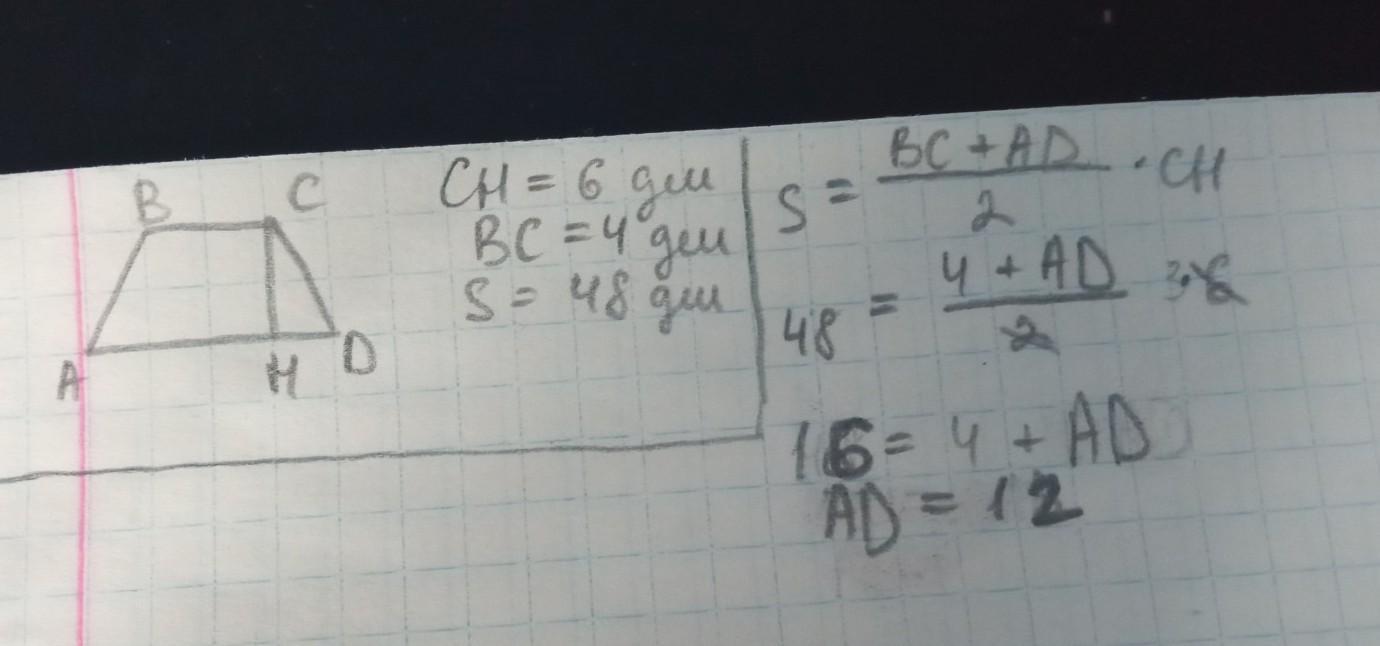 B C
A H D
CH = 6 дм
BC = 4 дм
S = 48 дм
S = (BC + AD)/2 · CH
48 = (4 + AD)/2 3·6
16 = 4 + AD
AD = 12